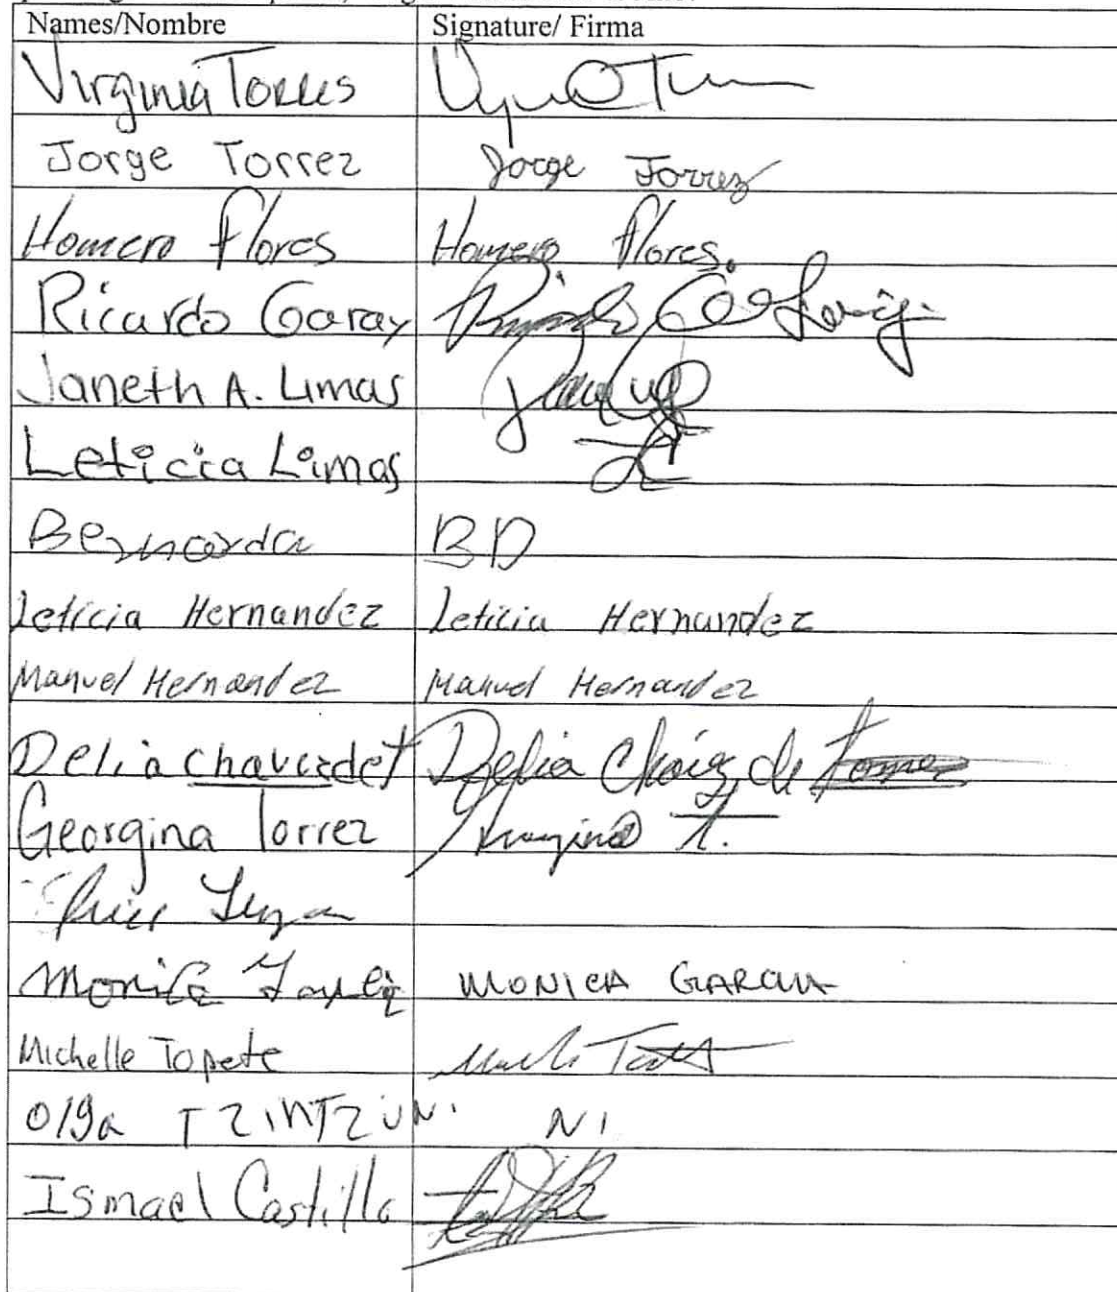 Names/Nombre Signature/ Firma
Virginia Torres
Jorge Torrez Jorge Torrez
Homero Flores Homero Flores.
Ricardo Garay
Janeth A. Limas
Leticia Limas
Bernarda BD
Leticia Hernandez Leticia Hernandez
Manuel Hernandez Manuel Hernandez
Delia Chavez de T Delia Cháiz de
Georgina Torrez T.
Monica MONICA GARCIA
Michelle Topete
Olga TZINTZUN. NI
Ismael Castillo